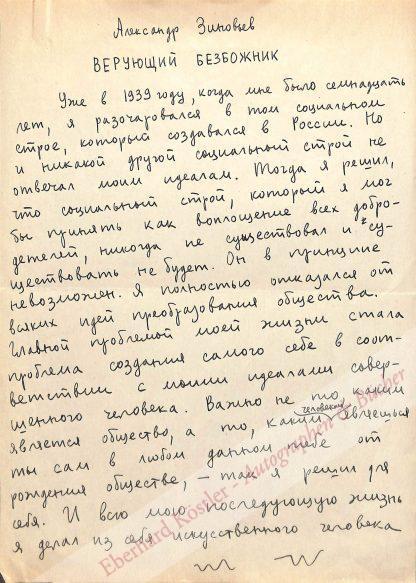 Александр Зиновьев
ВЕРУЮЩИЙ БЕЗБОЖНИК
Уже в 1939 году, когда мне было семнадцать
лет, я разочаровался в том социальном
строе, который создавался в России. Но
и никакой другой социальный строй не
отвечал моим идеалам. Тогда я решил,
что социальный строй, который я мог
бы принять как воплощение всех добро-
детелей, никогда не существовал и су-
ществовать не будет. Он в принципе
невозможен. Я полностью отказался от
всяких идей преобразования общества.
Главной проблемой моей жизни стала
проблема создания самого себя в соот-
ветствии с моими идеалами совер-
шенного человека. Важно не то, каким
является общество, а то, каким человеком являешься
ты сам в любом данном тебе от
рождения обществе, – так я решил для
себя. И всю мою последующую жизнь
я делал из себя искусственного человека
Eberhard Köstler - Autographen & Bücher